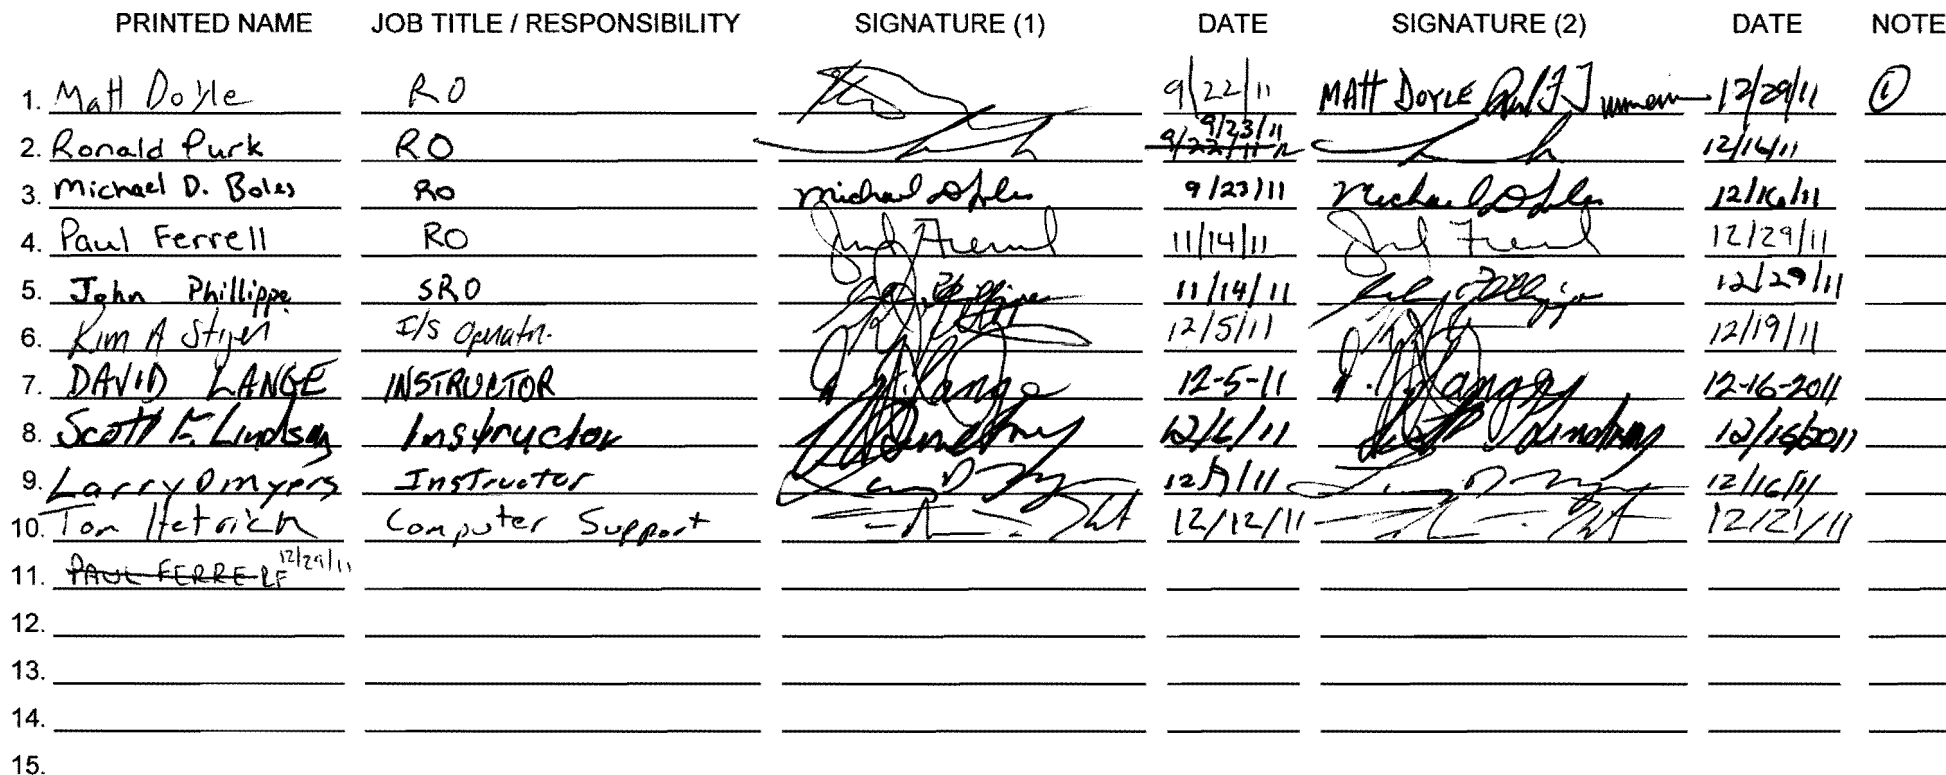 PRINTED NAME JOB TITLE / RESPONSIBILITY SIGNATURE (1) DATE SIGNATURE (2) DATE NOTE
1. Matt Doyle RO 9/22/11 MATT DOYLE 12/29/11 ①
2. Ronald Purk RO 9/22/11 9/23/11 12/16/11
3. Michael D. Boles RO Michael D Boles 9/23/11 Michael D Boles 12/16/11
4. Paul Ferrell RO 11/14/11 12/29/11
5. John Phillippe SRO 11/14/11 12/29/11
6. Kim A 12/5/11 12/19/11
7. DAVID LANGE INSTRUCTOR Lange 12-5-11 Lange 12-16-2011
8. Scott F. Lindsay Instructor 12/6/11 Scott Lindsay 12/16/2011
9. Larry D Myers Instructor 12/9/11 12/16/11
10. Tom Hetrick Computer Support 12/12/11 12/21/11
11. PAUL FERRE 12/29/11
12.
13.
14.
15.